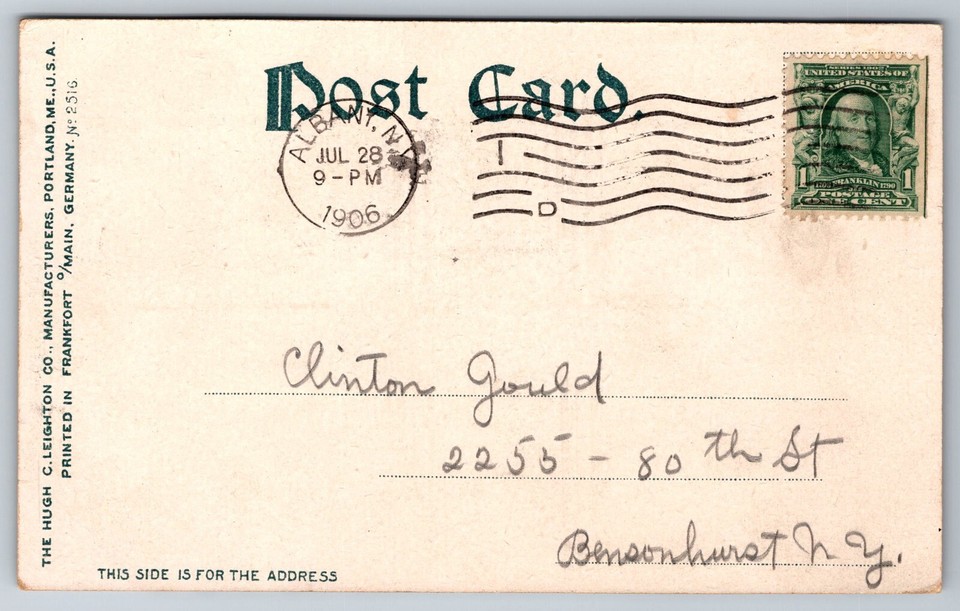 Post Card.
ALBANY, N.Y.
JUL 28
9-PM
1906
D
SERIES 1902
UNITED STATES OF
AMERICA
1 FRANKLIN 1790 1
POSTAGE
ONE CENT
Clinton Gould
2255 - 80th St
Bensonhurst N.Y.
THIS SIDE IS FOR THE ADDRESS
THE HUGH C. LEIGHTON CO., MANUFACTURERS, PORTLAND, ME., U.S.A.
PRINTED IN FRANKFORT O/MAIN, GERMANY. No 2516